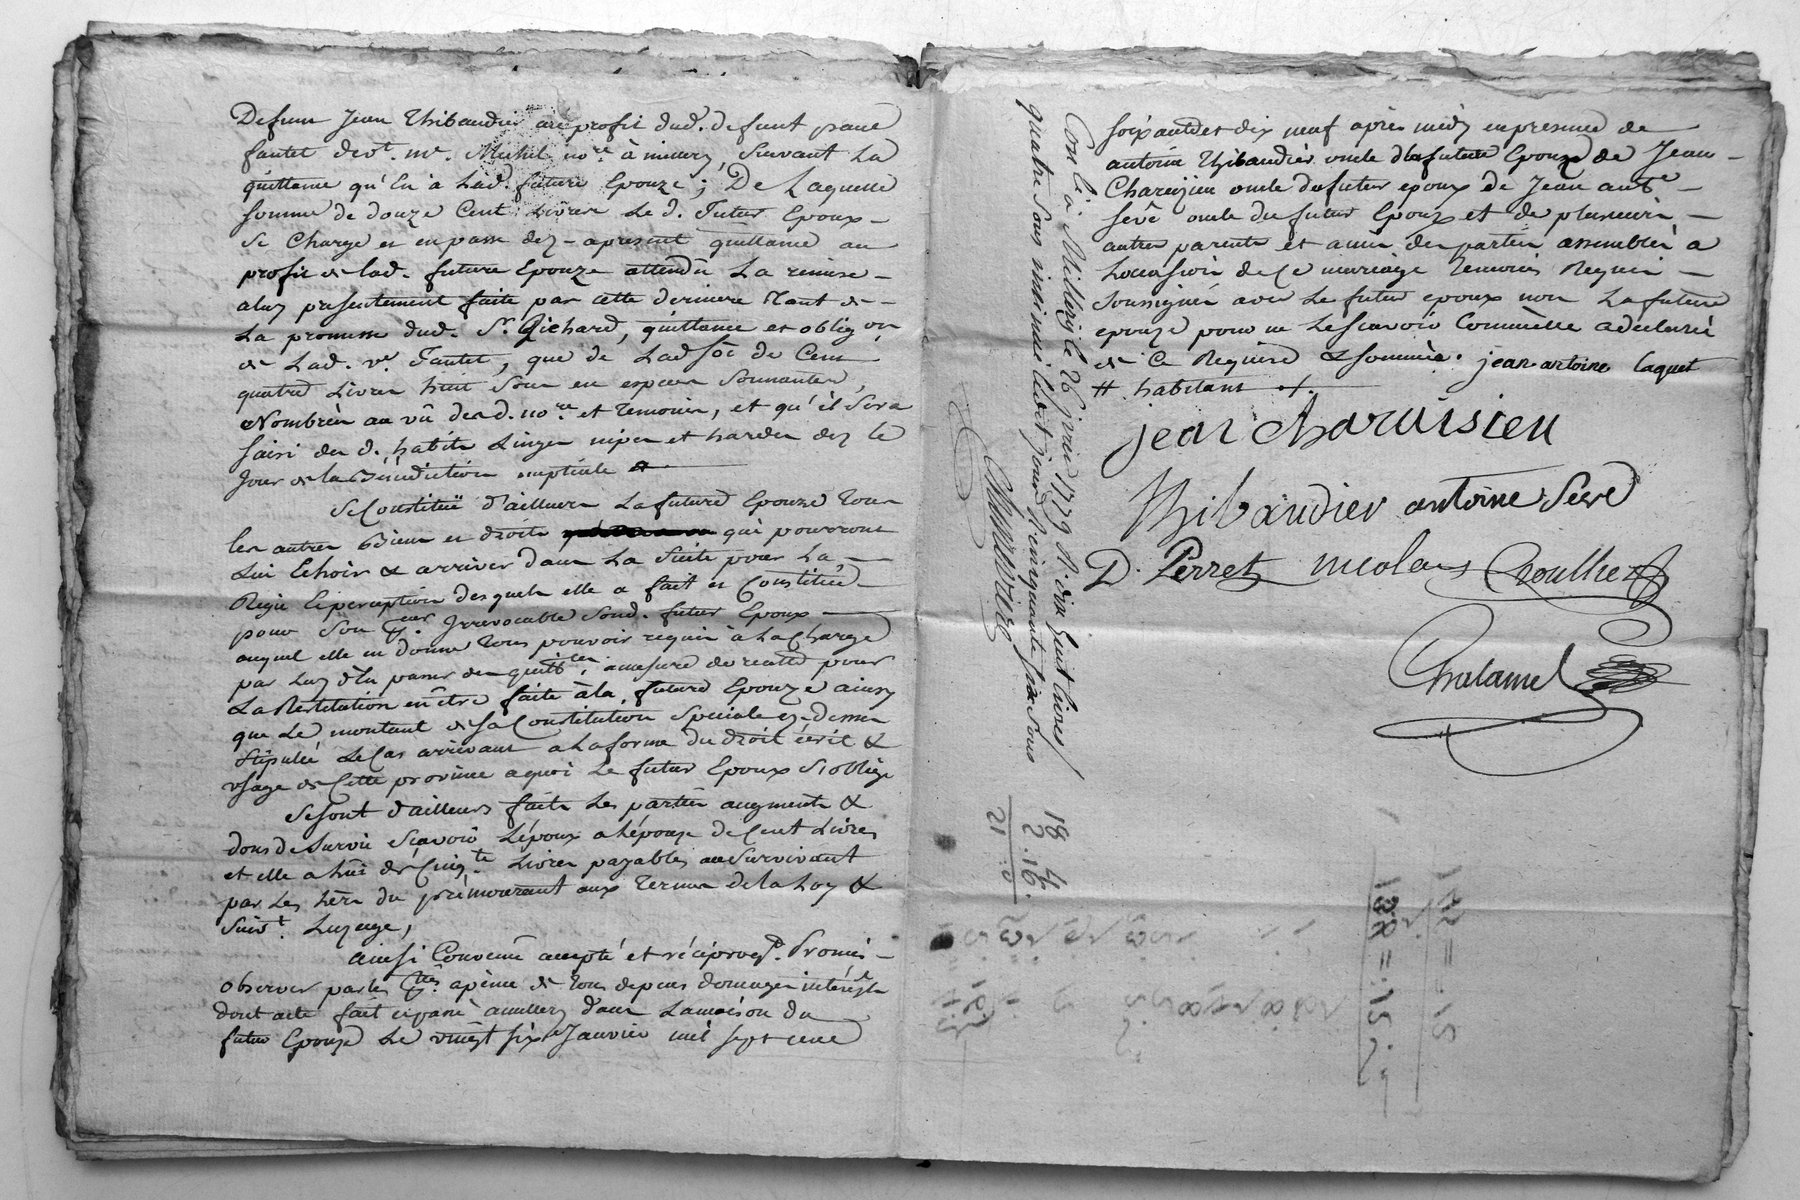 Defunt Jean Thibaudier au profit dud. defunt pane
fautet devt. me. Michel nore. à millery, Suivant La
quittance qu'En à Lad. future Epouze; De Laquelle
somme de douze Cent Livres Le d. Futur Epoux –
se Charge et en passe dez – apresent quittance au
profit de lad. future Epouze attendû La remise –
aluy presentement faite par cette derniere Tant de –
La promesse dud. Sr. Richard, quittance et oblig on
de Lad. ve. Fautet, que de Lad sôe de Cent
quatre Livres huit Sous en especes Sonnantes,
Nombrées au vû desd. nore et Temoins, et qu'il Sera
saisi des d. habits Linges nipes et hardes dez le
Jour de la Bénédiction nuptiale
Se Constitüe d'ailleurs La future Epouze Tous
les autres Biens et droits qui pourront
Lui Echoir & arriver dans La Suite pour La –
Regie Eperception desquels elle a fait et Constitué
pour Son Irrevocable Sond. futur Epoux
auquel elle en donne Tous pouvoir requis à La Charge
par Luy d'En passer des quittces. amesure de reatte pour
La Restitution en être faite à la future Epouze ainsy
que Le montant de sa Constitution Speciale cy-Dessus
Stipulée Le Cas arrivant a la forme du droit écrit &
usage de Cette province aquoi Le futur Epoux S'oblige
Se sont d'ailleurs faits Les parties augments &
dons de Survie Scavoir L'époux a L'épouze de Cent Livres
et elle a lui de Cinqte. Livres payables au Survivant
par Les hérs du prémourant aux Termes de la Loy &
Suivt. Luzage,
Ainsi Convenu accepté et réciproqt. Promis –
observer par les ptiés apeine de Tous depens domages intérêsts
dont acte fait et passé à millery dans La maison du
futur Epoux Le vingt six Janvier mil sept cent
soixante et dix neuf après midy en presence de
antoine Thibaudier oncle de la future Epouze de Jean –
Charvizieu oncle du futur epoux de Jean antne –
sevê oncle du futur Epoux et de plusieurs –
autres parents et amis des parties assemblés a
Loccasion de Ce mariage Temoins Requis –
Soussignés avec Le futur epoux non La future
epouze pour ne Le Scavoir Comme elle a declaré
de Ce Requise & sommée. jean antoine Laquet
# habitans +
jean Charvisieu
Thibaudier antoine Seve
D. Perret nicolas
Chalamel
Con lé à Millery le 26 jvier 1779 R. dix huit livres
quatre Sous cinquante six Sous
18 4
2 . 16
21 . 0